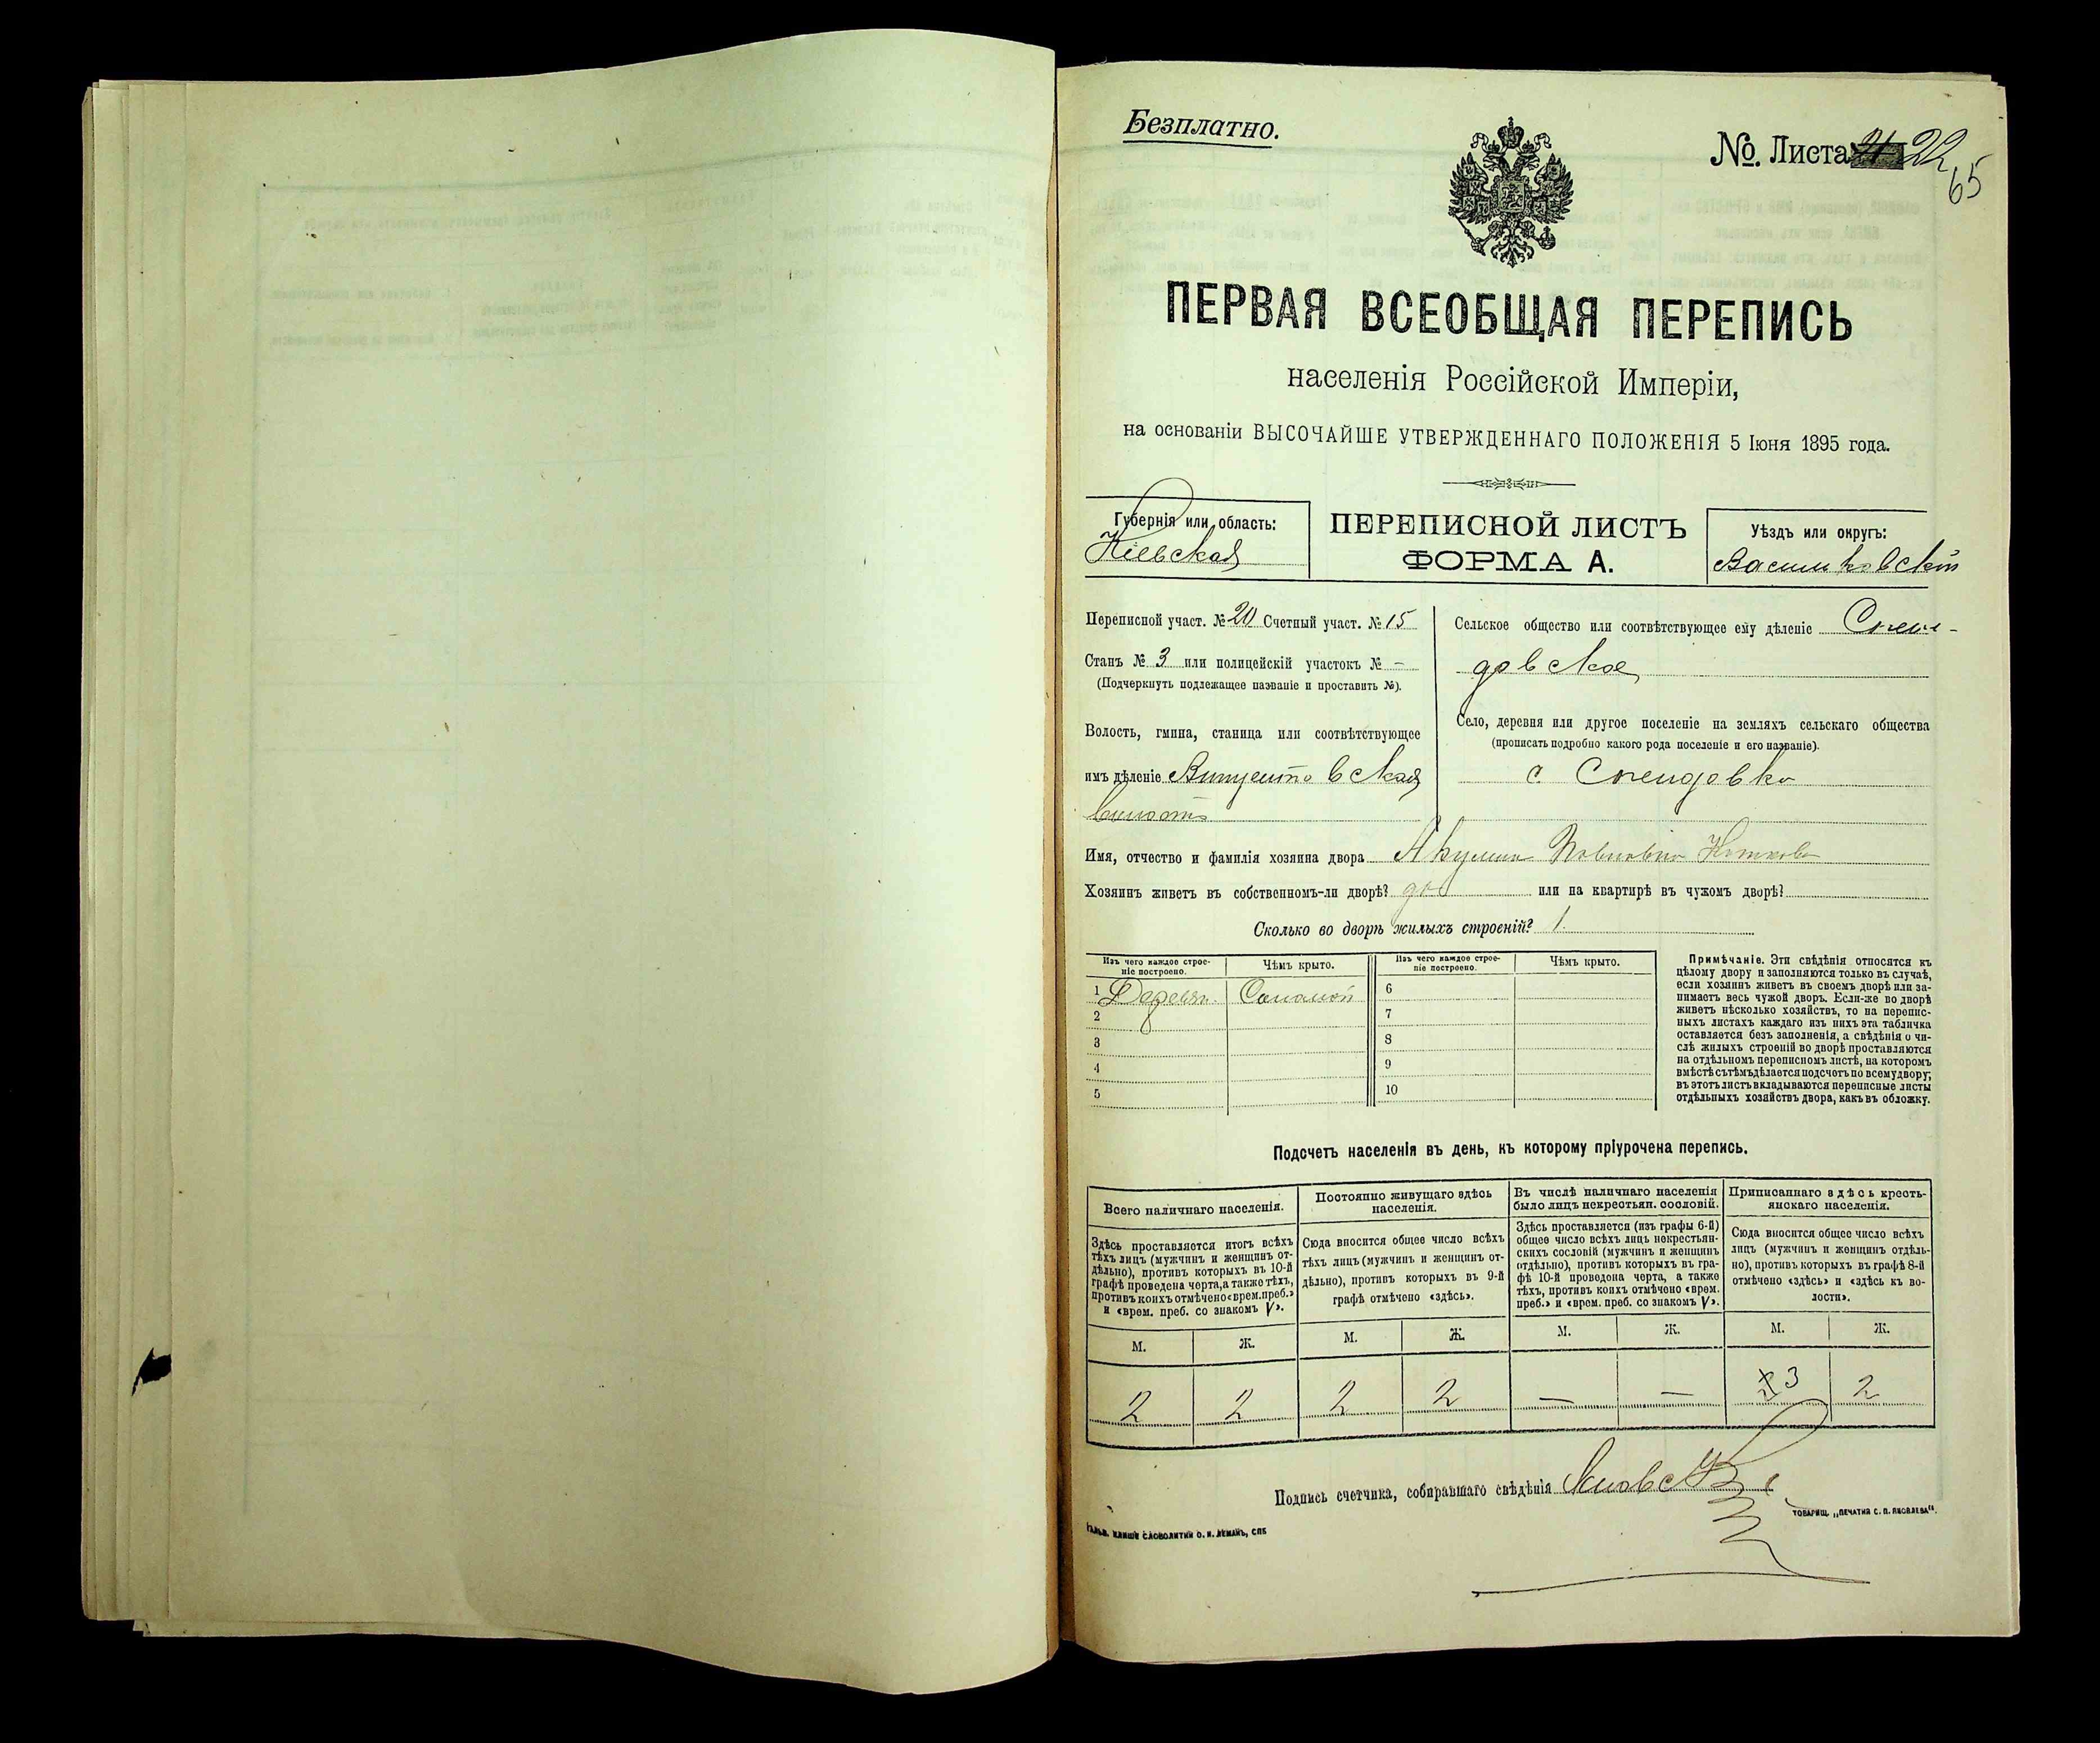 Безплатно.
№. Листа 22
65
ПЕРВАЯ ВСЕОБЩАЯ ПЕРЕПИСЬ
населенія Россійской Имперіи,
на основаніи ВЫСОЧАЙШЕ УТВЕРЖДЕННАГО ПОЛОЖЕНІЯ 5 Іюня 1895 года.
Губернія или область:
Кіевская
ПЕРЕПИСНОЙ ЛИСТЪ
ФОРМА А.
Уѣздъ или округъ:
Васильковскій
Переписной участ. № 20 Счетный участ. № 15
Станъ № 3 или полицейскій участокъ № –
(Подчеркнуть подлежащее названіе и проставить №).
Волость, гмина, станица или соотвѣтствующее
имъ дѣленіе
волость
Сельское общество или соотвѣтствующее ему дѣленіе
довское
Село, деревня или другое поселеніе на земляхъ сельскаго общества
(прописать подробно какого рода поселеніе и его названіе).
с
Имя, отчество и фамилія хозяина двора Акулина Павловна
Хозяинъ живетъ въ собственномъ-ли дворѣ? да или на квартирѣ въ чужомъ дворѣ?
Сколько во дворѣ жилыхъ строеній? 1.
Изъ чего каждое строе-
ніе построено.
Чѣмъ крыто.
Изъ чего каждое строе-
ніе построено.
Чѣмъ крыто.
1 Деревян. Соломой
2
3
4
5
6
7
8
9
10
Примѣчаніе. Эти свѣдѣнія относятся къ
цѣлому двору и заполняются только въ случаѣ,
если хозяинъ живетъ въ своемъ дворѣ или за-
нимаетъ весь чужой дворъ. Если-же во дворѣ
живетъ нѣсколько хозяйствъ, то на перепис-
ныхъ листахъ каждаго изъ нихъ эта табличка
оставляется безъ заполненія, а свѣдѣнія о чи-
слѣ жилыхъ строеній во дворѣ проставляются
на отдѣльномъ переписномъ листѣ, на которомъ
вмѣстѣ съ тѣмъ дѣлается подсчетъ по всему двору;
въ этотъ листъ вкладываются переписные листы
отдѣльныхъ хозяйствъ двора, какъ въ обложку.
Подсчетъ населенія въ день, къ которому пріурочена перепись.
Всего наличнаго населенія.
Здѣсь проставляется итогъ всѣхъ
тѣхъ лицъ (мужчинъ и женщинъ от-
дѣльно), противъ которыхъ въ 10-й
графѣ проведена черта, а также тѣхъ,
противъ коихъ отмѣчено «врем. преб.»
и «врем. преб. со знакомъ V».
Постоянно живущаго здѣсь
населенія.
Сюда вносится общее число всѣхъ
тѣхъ лицъ (мужчинъ и женщинъ от-
дѣльно), противъ которыхъ въ 9-й
графѣ отмѣчено «здѣсь».
Въ числѣ наличнаго населенія
было лицъ некрестьян. сословій.
Здѣсь проставляется (изъ графы 6-й)
общее число всѣхъ лицъ некрестьян-
скихъ сословій (мужчинъ и женщинъ
отдѣльно), противъ которыхъ въ гра-
фѣ 10-й проведена черта, а также
тѣхъ, противъ коихъ отмѣчено «врем.
преб.» и «врем. преб. со знакомъ V».
Приписаннаго здѣсь кресть-
янскаго населенія.
Сюда вносится общее число всѣхъ
лицъ (мужчинъ и женщинъ отдѣль-
но), противъ которыхъ въ графѣ 8-й
отмѣчено «здѣсь» и «здѣсь къ во-
лости».
М. Ж. М. Ж. М. Ж. М. Ж.
2 2 2 2 — — 3 2
Подпись счетчика, собиравшаго свѣдѣнія
Гальв. клише словолитни О. И. Леманъ, СПБ
Товарищ. „Печатня С. П. Яковлева“.